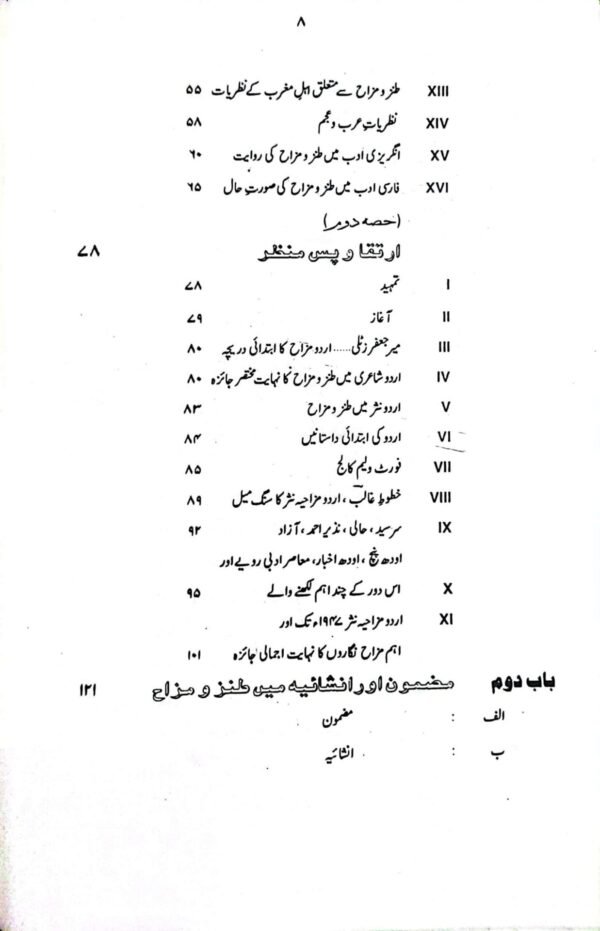 ۸
XIII طنز و مزاح سے متعلق اہلِ مغرب کے نظریات ۵۵
XIV نظریاتِ عرب و عجم ۵۸
XV انگریزی ادب میں طنز و مزاح کی روایت ۶۰
XVI فارسی ادب میں طنز و مزاح کی صورتِ حال ۶۵
(حصہ دوم)
ارتقا و پس منظر ۷۸
I تمہید ۷۸
II آغاز ۷۹
III میر جعفر زٹلی...... اردو مزاح کا ابتدائی دریچہ ۸۰
IV اردو شاعری میں طنز و مزاح کا نہایت مختصر جائزہ ۸۰
V اردو نثر میں طنز و مزاح ۸۳
VI اردو کی ابتدائی داستانیں ۸۴
VII فورٹ ولیم کالج ۸۵
VIII خطوطِ غالبؔ ، اردو مزاحیہ نثر کا سنگ میل ۸۹
IX سرسید، حالی، نذیر احمد، آزاد ۹۲
اودھ پنچ ، اودھ اخبار، معاصر ادبی رویے اور
X اس دور کے چند اہم لکھنے والے ۹۵
XI اردو مزاحیہ نثر ۱۹۴۷ء تک اور
اہم مزاح نگاروں کا نہایت اجمالی جائزہ ۱۰۱
باب دوم مضمون اور انشائیہ میں طنز و مزاح ۱۲۱
الف : مضمون
ب : انشائیہ